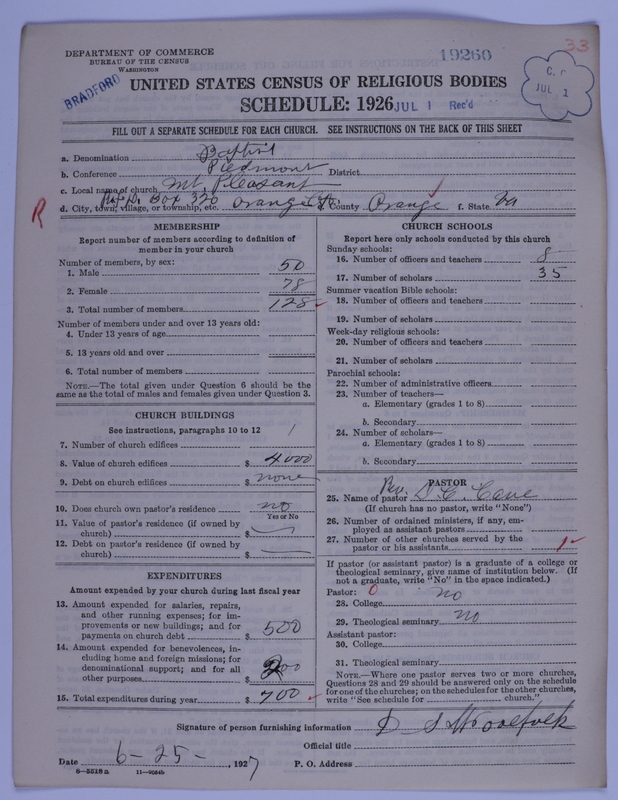 DEPARTMENT OF COMMERCE
BUREAU OF THE CENSUS
WASHINGTON
BRADFORD
19260
33
JUL 1
UNITED STATES CENSUS OF RELIGIOUS BODIES
SCHEDULE: 1926
JUL 1 Rec'd
FILL OUT A SEPARATE SCHEDULE FOR EACH CHURCH. SEE INSTRUCTIONS ON THE BACK OF THIS SHEET
a. Denomination Baptist
b. Conference Piedmont District
c. Local name of church Mt Pleasant
d. City, town, village, or township, etc. Box 320 Orange County Orange f. State Va
R
MEMBERSHIP
Report number of members according to definition of member in your church
Number of members, by sex:
1. Male 50
2. Female 78
3. Total number of members 128
Number of members under and over 13 years old:
4. Under 13 years of age
5. 13 years old and over
6. Total number of members
NOTE.—The total given under Question 6 should be the
same as the total of males and females given under Question 3.
CHURCH BUILDINGS
See instructions, paragraphs 10 to 12
7. Number of church edifices 1
8. Value of church edifices $ 4000
9. Debt on church edifices $ none
10. Does church own pastor's residence no
Yes or No
11. Value of pastor's residence (if owned by
church) $
12. Debt on pastor's residence (if owned by
church) $
EXPENDITURES
Amount expended by your church during last fiscal year
13. Amount expended for salaries, repairs,
and other running expenses; for im-
provements or new buildings; and for
payments on church debt $ 500
14. Amount expended for benevolences, in-
cluding home and foreign missions; for
denominational support; and for all
other purposes $ 200
15. Total expenditures during year $ 700
CHURCH SCHOOLS
Report here only schools conducted by this church
Sunday schools:
16. Number of officers and teachers 8
17. Number of scholars 35
Summer vacation Bible schools:
18. Number of officers and teachers
19. Number of scholars
Week-day religious schools:
20. Number of officers and teachers
21. Number of scholars
Parochial schools:
22. Number of administrative officers
23. Number of teachers—
a. Elementary (grades 1 to 8)
b. Secondary
24. Number of scholars—
a. Elementary (grades 1 to 8)
b. Secondary
PASTOR
25. Name of pastor Rev. S. C. Cave
(If church has no pastor, write "None")
26. Number of ordained ministers, if any, em-
ployed as assistant pastors
27. Number of other churches served by the
pastor or his assistants 1
If pastor (or assistant pastor) is a graduate of a college or
theological seminary, give name of institution below. (If
not a graduate, write "No" in the space indicated.)
Pastor: 0
28. College no
29. Theological seminary no
Assistant pastor:
30. College
31. Theological seminary
NOTE.—Where one pastor serves two or more churches,
Questions 28 and 29 should be answered only on the schedule
for one of the churches; on the schedules for the other churches,
write "See schedule for church."
Signature of person furnishing information D S Woolfolk
Official title
Date 6-25-, 1927 P. O. Address
8-5518a 11-9054b